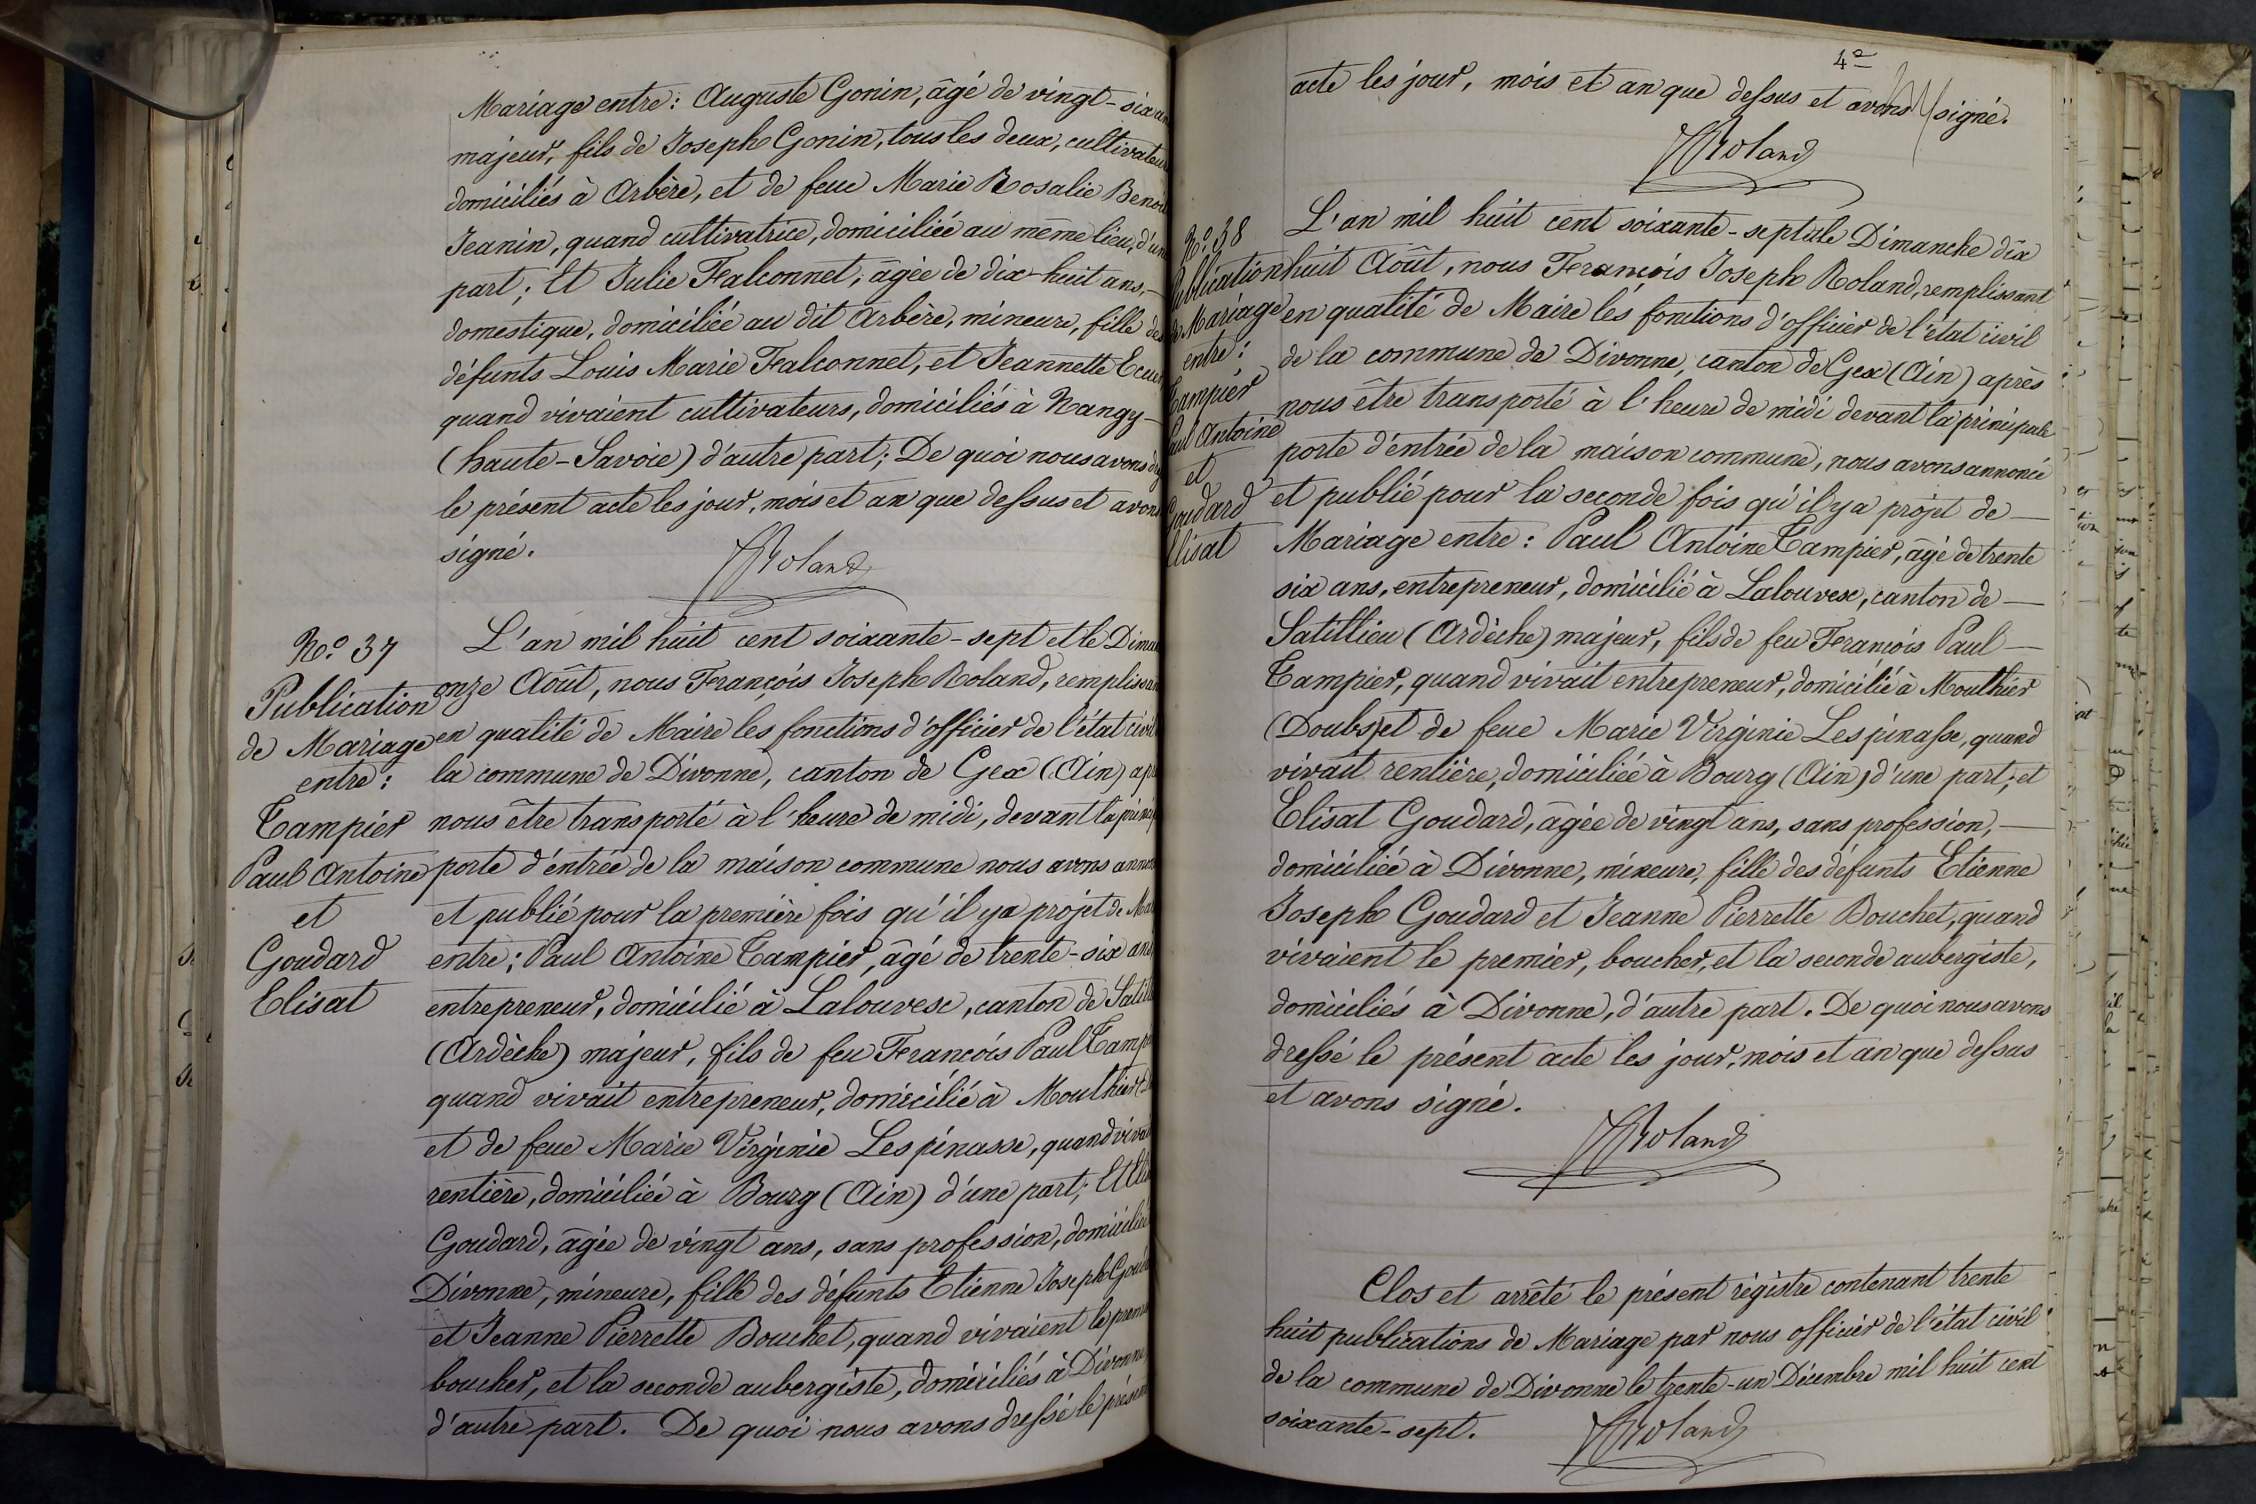 Mariage entre: Auguste Gonin, âgé de vingt-six
majeur, fils de Joseph Gonin, tous les deux, cultivateurs
domiciliés à Arbère, et de feue Marie Rosalie
Jeanin, quand cultivatrice, domiciliée au même lieu, d'une
part; Et Julie Falconnet, âgée de dix-huit ans,
domestique, domiciliée au dit Arbère, mineure, fille des
défunts Louis Marie Falconnet, et Jeannette
quand vivaient cultivateurs, domiciliés à Nangy
(haute-Savoie) d'autre part; De quoi nous avons
le présent acte les jour, mois et an que dessus et avons
signé.
Roland
No. 37
Publication
de Mariage
entre:
Tampier
Paul Antoine
et
Goudard
Elisat
L'an mil huit cent soixante-sept et le
onze Août, nous François Joseph Roland,
en qualité de Maire les fonctions d'officier de l'état civil
la commune de Divonne, canton de Gex (Ain)
nous être transporté à l'heure de midi, devant la
porte d'éntrée de la maison commune nous avons
et publié pour la première fois qu'il y a projet de
entre: Paul Antoine Tampier, âgé de trente-six ans,
entrepreneur, domicilié à Lalouvesc, canton de
(Ardèche) majeur, fils de feu François Paul
quand vivait entrepreneur, domicilié à Mouthier
et de feue Marie Virginie Lespinasse, quand vivait
rentière, domiciliée à Bourg (Ain) d'une part; Et
Goudard, âgée de vingt ans, sans profession,
Divonne, mineure, fille des défunts Etienne Joseph
et Jeanne Pierrette Bouchet, quand vivaient le
boucher, et la seconde aubergiste, domiciliés à Divonne
d'autre part. De quoi nous avons dressé le
4e
acte les jour, mois et an que dessus et avons signé.
Roland
No. 38
Publication
de Mariage
entre:
Tampier
Paul Antoine
et
Goudard
Elisat
L'an mil huit cent soixante-sept et le Dimanche dix
huit Août, nous François Joseph Roland, remplissant
en qualité de Maire les fonctions d'officier de l'état civil
de la commune de Divonne, canton de Gex (Ain) après
nous être transporté à l'heure de midi devant la principale
porte d'éntrée de la maison commune, nous avons annoncé
et publié pour la seconde fois qu'il y a projet de
Mariage entre: Paul Antoine Tampier, âgé de trente
six ans, entrepreneur, domicilié à Lalouvesc, canton de
Satillieu (Ardèche) majeur, fils de feu François Paul
Tampier, quand vivait entrepreneur, domicilié à Mouthier
(Doubs) et de feue Marie Virginie Lespinasse, quand
vivait rentière, domiciliée à Bourg (Ain) d'une part; et
Elisat Goudard, âgée de vingt ans, sans profession,
domiciliée à Divonne, mineure, fille des défunts Etienne
Joseph Goudard et Jeanne Pierrette Bouchet, quand
vivaient le premier, boucher, et la seconde aubergiste,
domiciliés à Divonne, d'autre part. De quoi nous avons
dressé le présent acte les jour, mois et an que dessus
et avons signé.
Roland
Clos et arrêté le présent régistre contenant trente
huit publications de Mariage par nous officier de l'état civil
de la commune de Divonne le trente-un Décembre mil huit cent
soixante-sept.
Roland